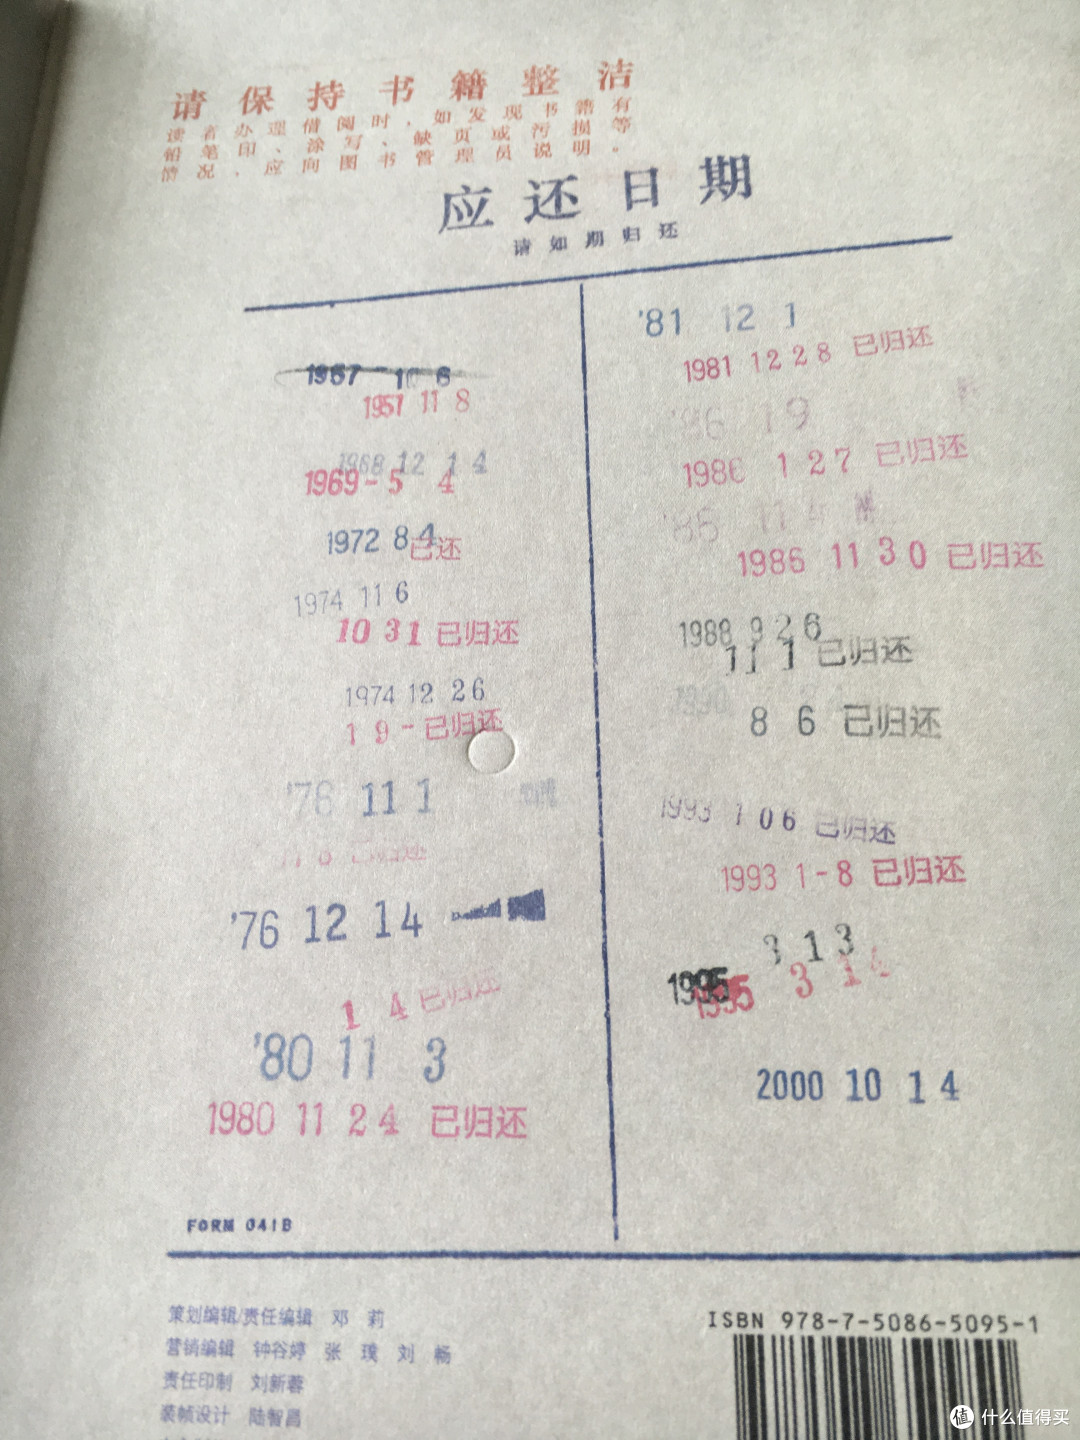 请保持书籍整洁
读者办理借阅时,如发现书籍有
铅笔印、涂写、缺页或污损等
情况,应向图书管理员说明。
应还日期
请如期归还
11 8
1968 12 1 4
1969-5 4
1972 8 4
已还
1974 11 6
10 31 已归还
1974 12 26
1 9-已归还
11 1
已归还
'76 12 14
1 4 已归还
'80 11 3
1980 11 24 已归还
FORM 041B
'81 12 1
1981 12 28 已归还
1 9
1986 1 27 已归还
1986 11 30 已归还
1988 9 26
11 1 已归还
8 6 已归还
1993 1 06 已归还
1993 1-8 已归还
1995 3 13
1995 3 14
2000 10 14
策划编辑/责任编辑 邓 莉
营销编辑 钟谷婷 张 璞 刘 畅
责任印制 刘新蓉
装帧设计 陆智昌
ISBN 978-7-5086-5095-1
值 什么值得买